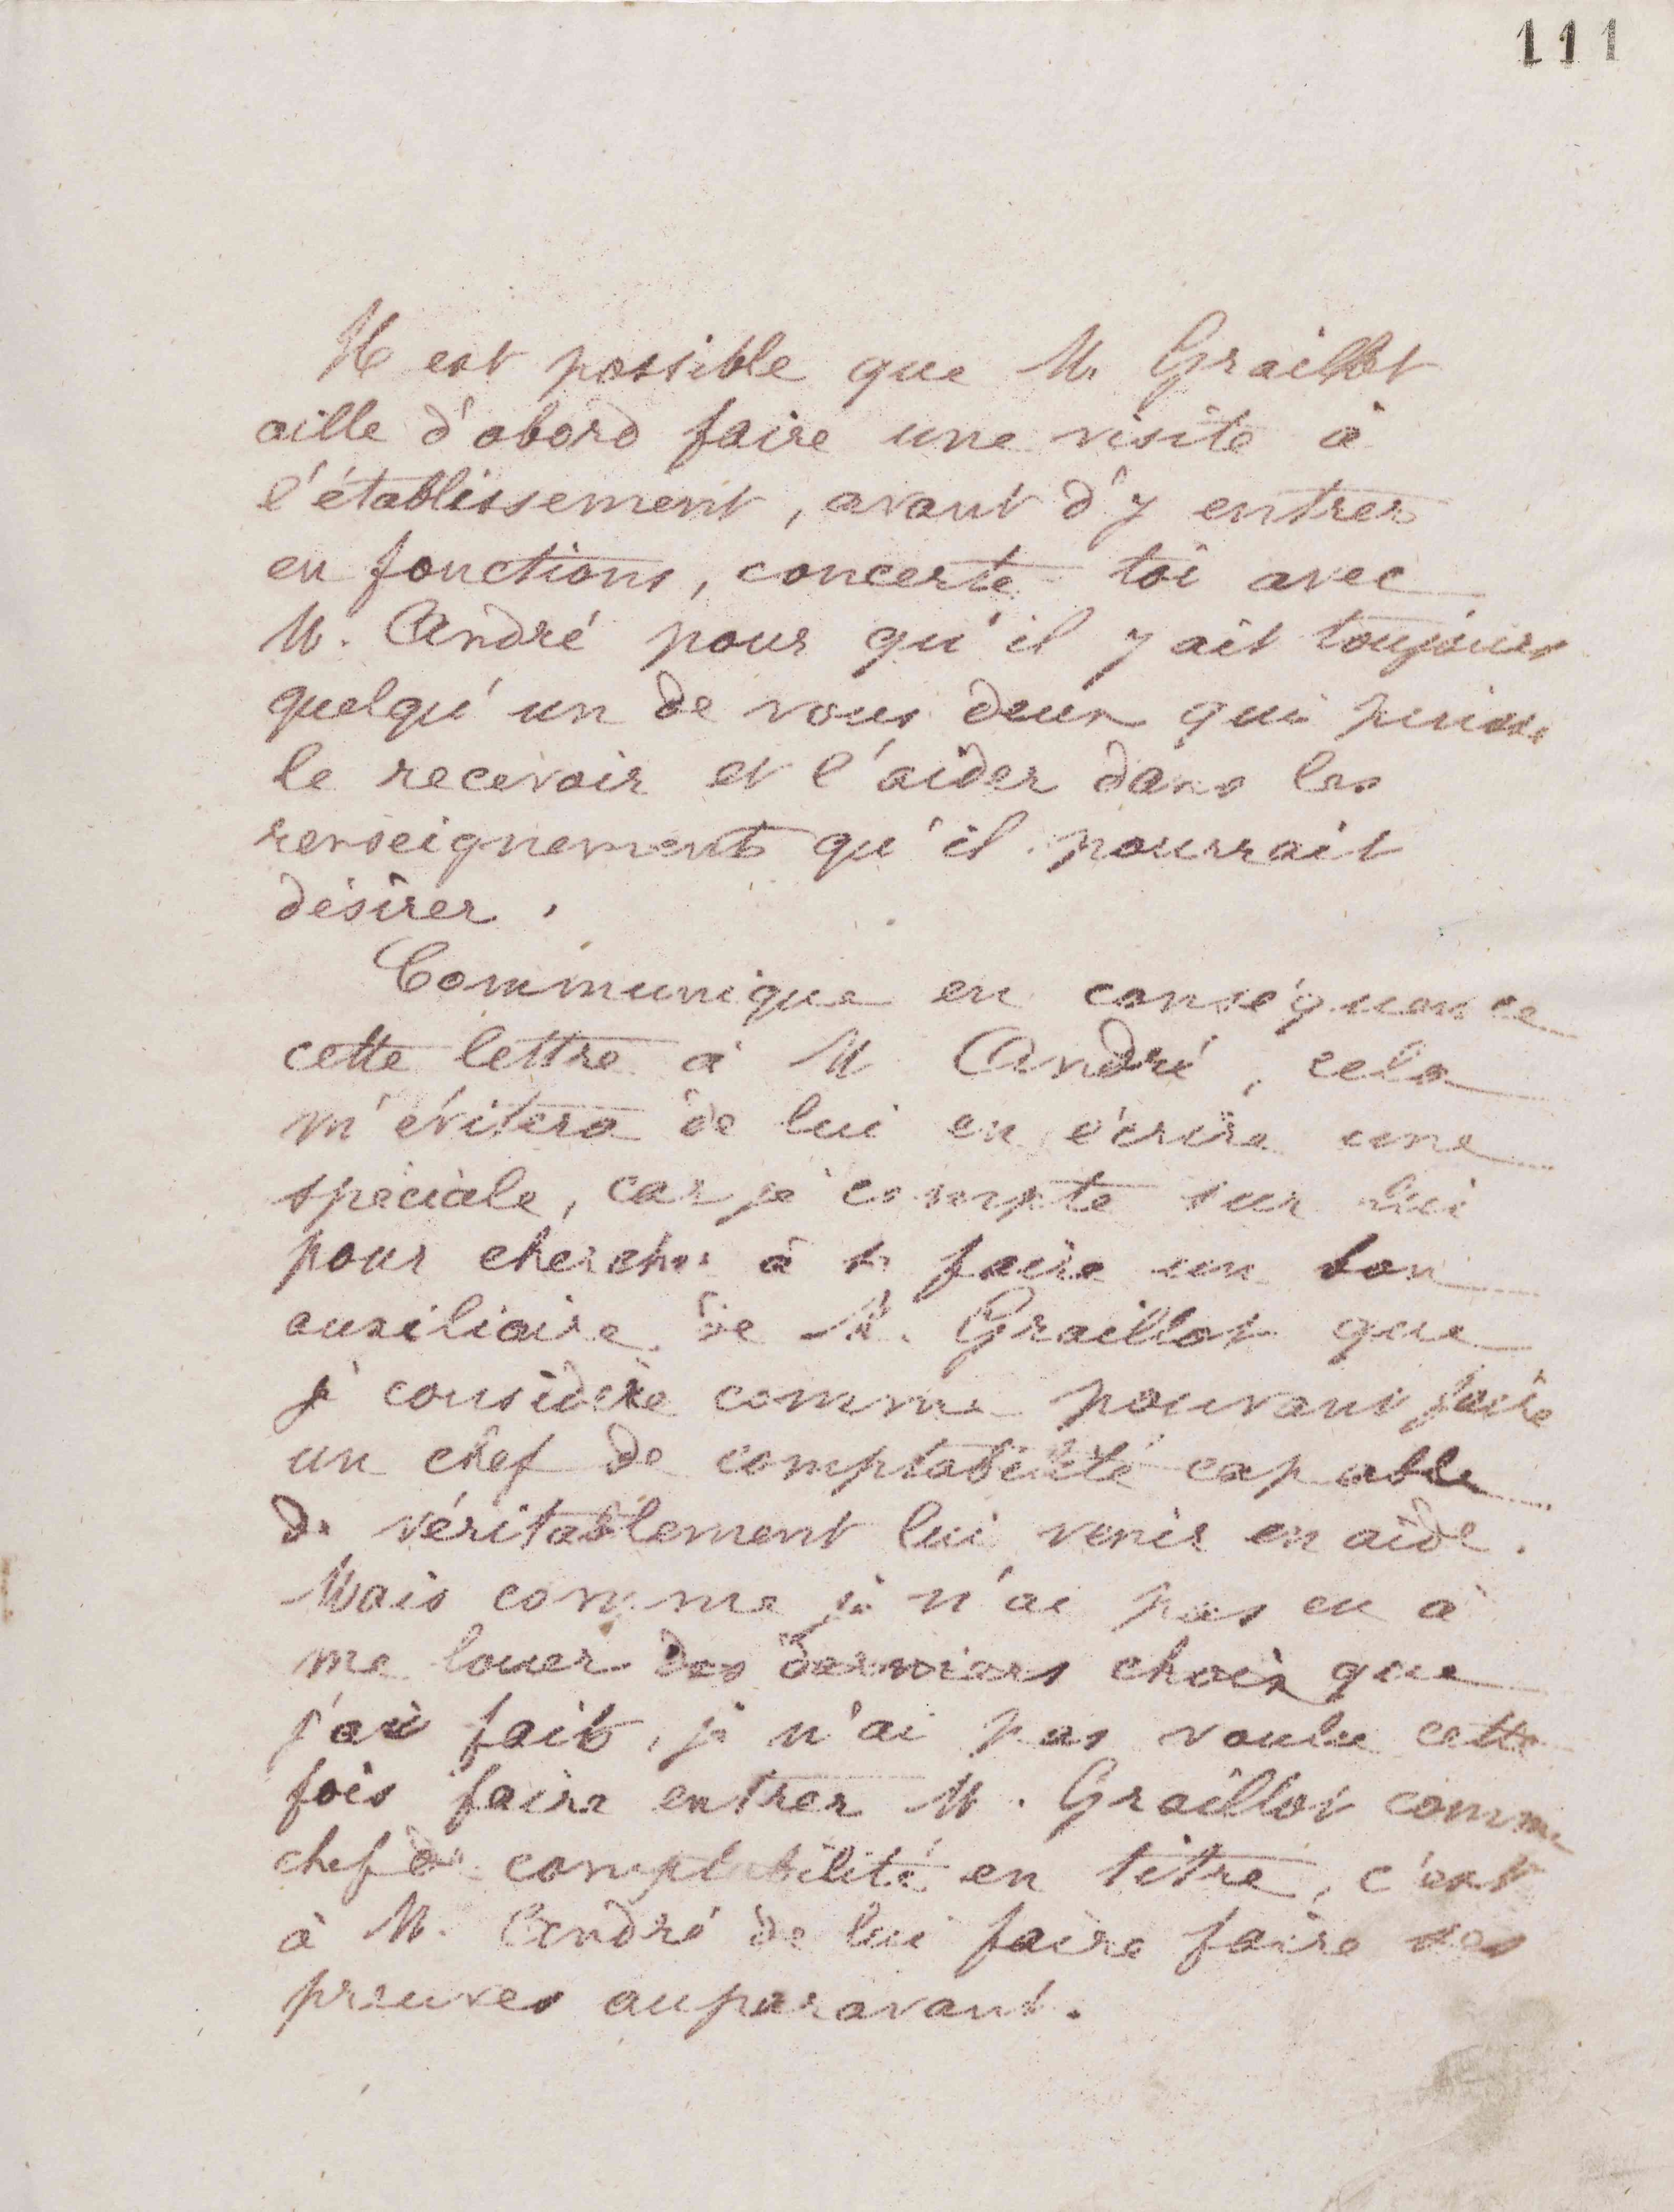 111
Il est possible que M. Graillot
aille d'abord faire une visite à
l'établissement, avant d'y entrer
en fonctions, concerte toi avec
M. André pour qu'il y ait toujours
quelqu'un de vous deux qui puisse
le recevoir et l'aider dans les
renseignements qu'il pourrait
désirer.
Communique en conséquence
cette lettre à M André, cela
m'évitera de lui en écrire une
spéciale, car je compte sur lui
pour chercher à se faire un bon
auxiliaire de M. Graillot que
je considère comme pouvant faire
un chef de comptabilité capable
de véritablement lui venir en aide.
Mais comme je n'ai pas eu à
me louer des derniers choix que
j'ai fait, je n'ai pas voulu cette
fois faire entrer M. Graillot comme
chef de comptabilité en titre, c'est
à M. André de lui faire faire ses
preuves auparavant.